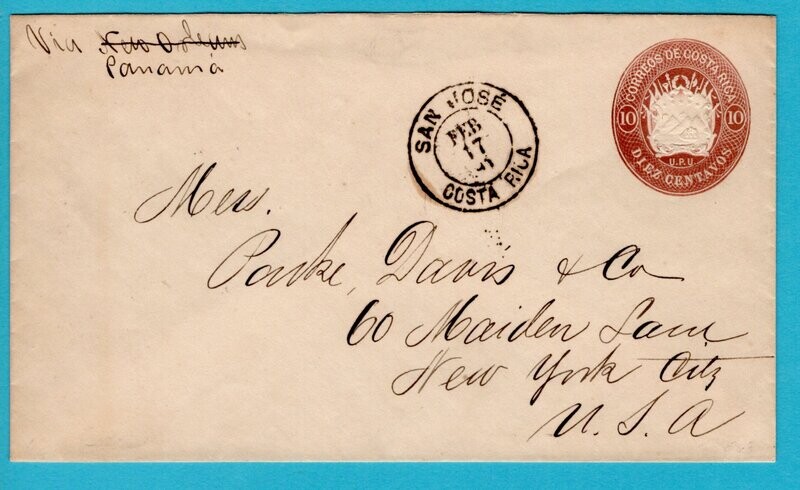 Via New Orleans
Panamá
SAN JOSÉ
FEB
17
COSTA RICA
CORREOS DE COSTA RICA
10 10
U.P.U
DIEZ CENTAVOS
Mess.
Parke, Davis & Co
60 Maiden Lane
New York City
U. S. A